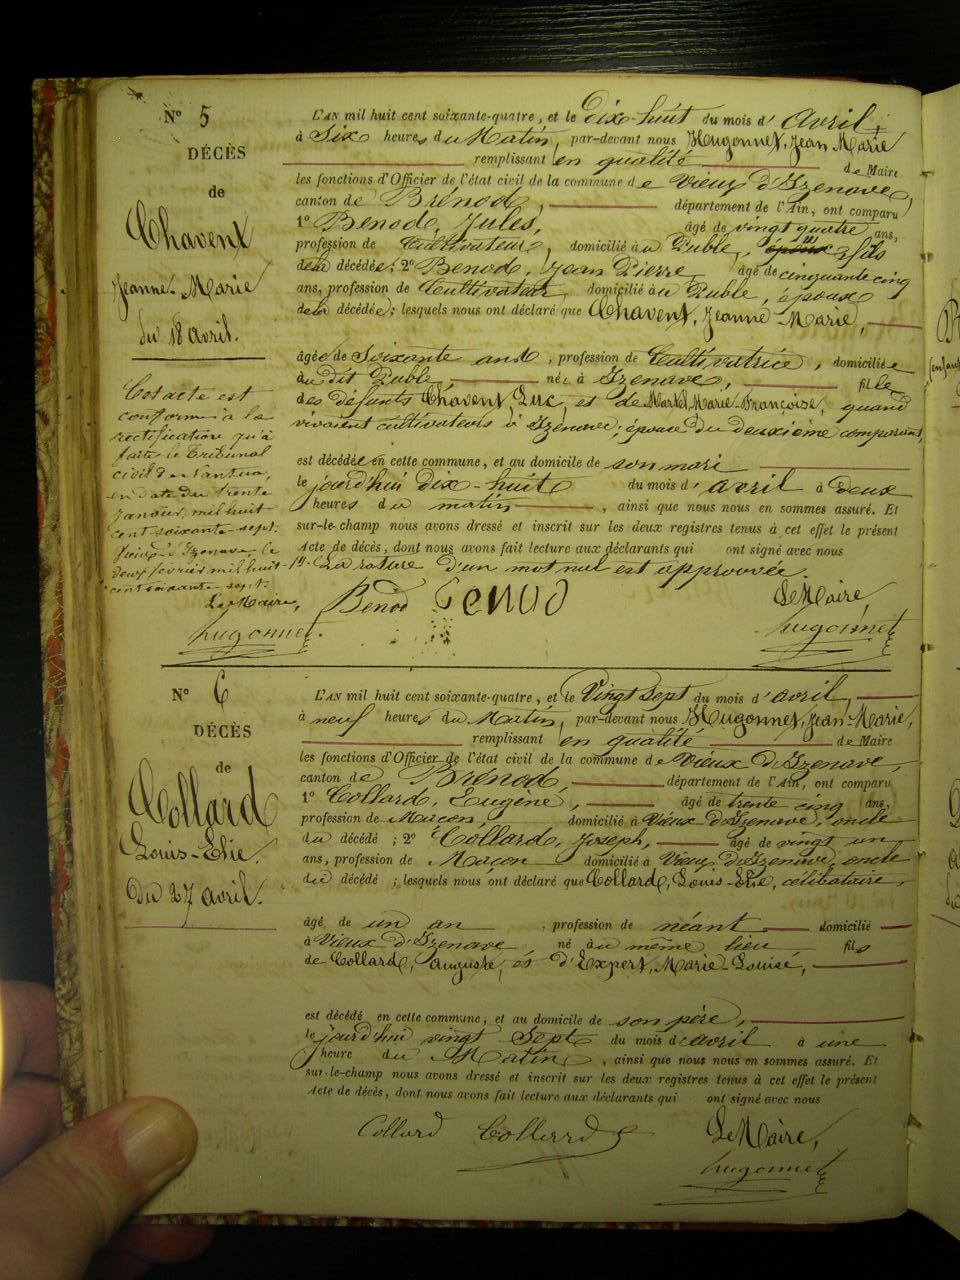 N° 5
DÉCÈS
de
Chavent
Jeanne-Marie
du 18 avril.
Cet acte est
conforme à la
rectification qu'a
faite le Tribunal
civil de Nantua,
en date du trente
janvier mil huit
cent soixante-sept.
Vieux d'Izenave, le
deux février mil huit
cent soixante-sept.
Le Maire,
hugonnet
L'AN mil huit cent soixante-quatre, et le Dix-huit du mois d'avril,
à Six heures du Matin, par-devant nous Hugonnet, Jean Marie
remplissant en qualité de Maire
les fonctions d'Officier de l'état civil de la commune de Vieux d'Izenave,
canton de Brénod, département de l'Ain, ont comparu
1° Benod, Jules, âgé de vingt quatre ans,
profession de Cultivateur, domicilié au Publé, époux fils
de la décédée; 2° Benod, Jean Pierre, âgé de cinquante cinq
ans, profession de Cultivateur, domicilié au Publé, époux
de la décédée; lesquels nous ont déclaré que Chavent, Jeanne Marie,
âgée de Soixante ans, profession de Cultivatrice, domiciliée
au dit Publé née à Izenave, fille
des défunts Chavent, Luc, et de Martel, Marie-Françoise, quand
vivaient cultivateurs à Izenave; épouse du deuxième comparant,
est décédée en cette commune, et au domicile de son mari
le jourd'hui dix-huit du mois d'avril à Deux
heures du matin, ainsi que nous nous en sommes assuré. Et
sur-le-champ nous avons dressé et inscrit sur les deux registres tenus à cet effet le présent
Acte de décès, dont nous avons fait lecture aux déclarants qui ont signé avec nous
La rature d'un mot nul est approuvée.
Benod Benod Le Maire,
hugonnet
N° 6
DÉCÈS
de
Collard
Louis-Elie.
Du 27 avril.
L'AN mil huit cent soixante-quatre, et le Vingt Sept du mois d'avril,
à neuf heures du Matin, par-devant nous Hugonnet, Jean-Marie,
remplissant en qualité de Maire
les fonctions d'Officier de l'état civil de la commune de Vieux d'Izenave,
canton de Brénod, département de l'Ain, ont comparu
1° Collard, Eugène, âgé de trente cinq ans,
profession de Maçon, domicilié à Vieux d'Izenave, oncle
du décédé; 2° Collard, Joseph, âgé de vingt un
ans, profession de Maçon domicilié à Vieux d'Izenave, oncle
du décédé; lesquels nous ont déclaré que Collard, Louis-Elie, célibataire,
âgé de un an, profession de néant domicilié
à Vieux d'Izenave, né au même lieu fils
de Collard, Auguste, et d'Expert, Marie-Louise,
est décédé en cette commune, et au domicile de son père,
le jourd'hui vingt Sept du mois d'avril à une
heure du Matin, ainsi que nous nous en sommes assuré. Et
sur-le-champ nous avons dressé et inscrit sur les deux registres tenus à cet effet le présent
Acte de décès, dont nous avons fait lecture aux déclarants qui ont signé avec nous
Collard Collard Le Maire,
hugonnet